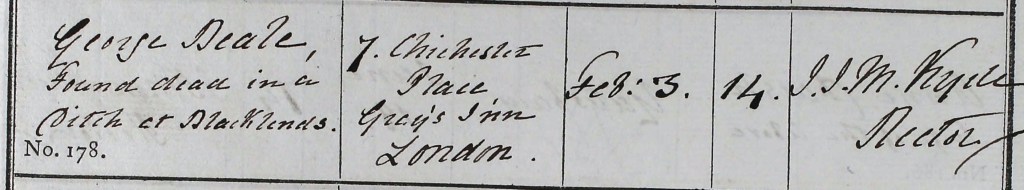 George Beale,
Found dead in a
Ditch at Blacklands.
No. 178.
7. Chichester
Place
Gray's Inn
London.
Feb: 3.
14.
J. J. M.
Rector